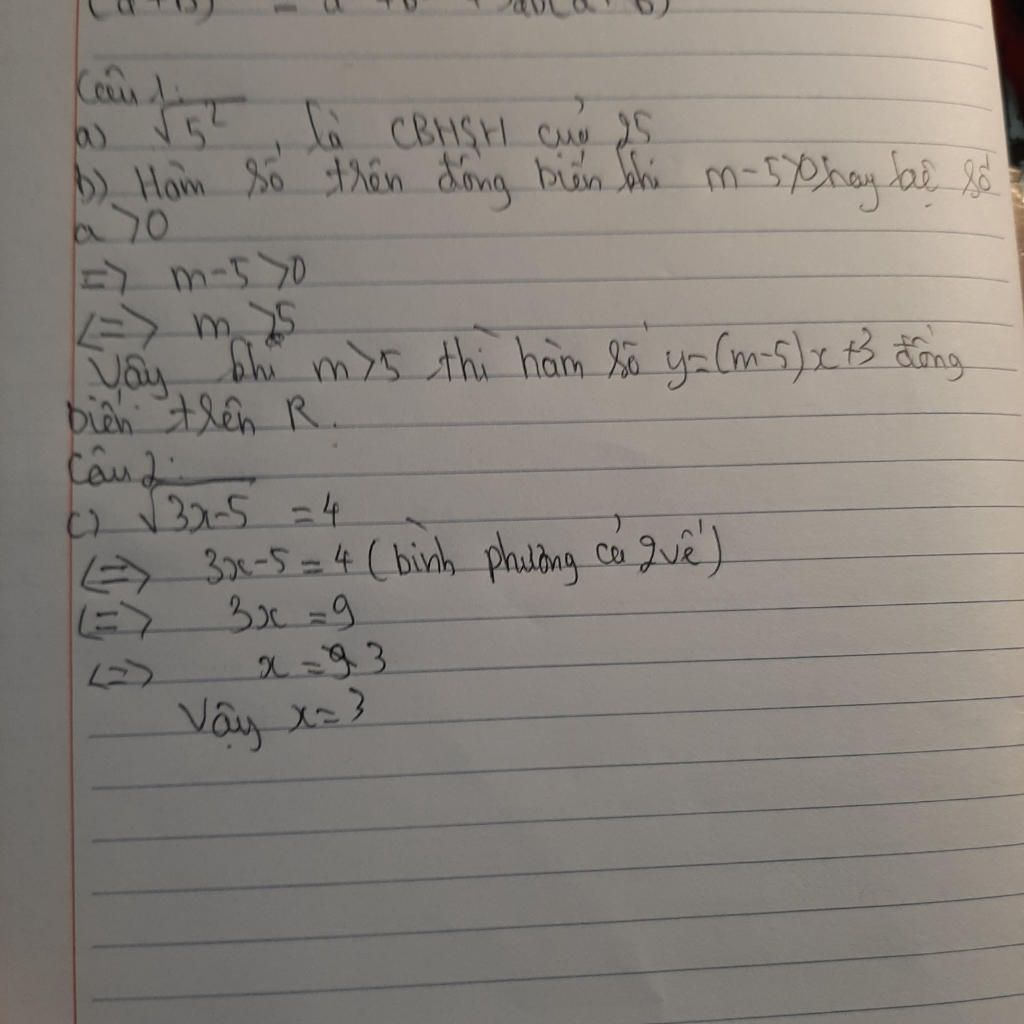 Câu 1:
a) √5², là CBHSH của 25
b) Hàm số trên đồng biến khi m-5>0 hay hệ số
a >0
=> m-5 >0
<=> m >5
Vậy khi m>5 thì hàm số y=(m-5)x+3 đồng
biến trên R.
Câu 2:
c) √3x-5 = 4
<=> 3x-5 = 4 (bình phương cả 2 vế)
<=> 3x = 9
<=> x = 3
Vậy x = 3